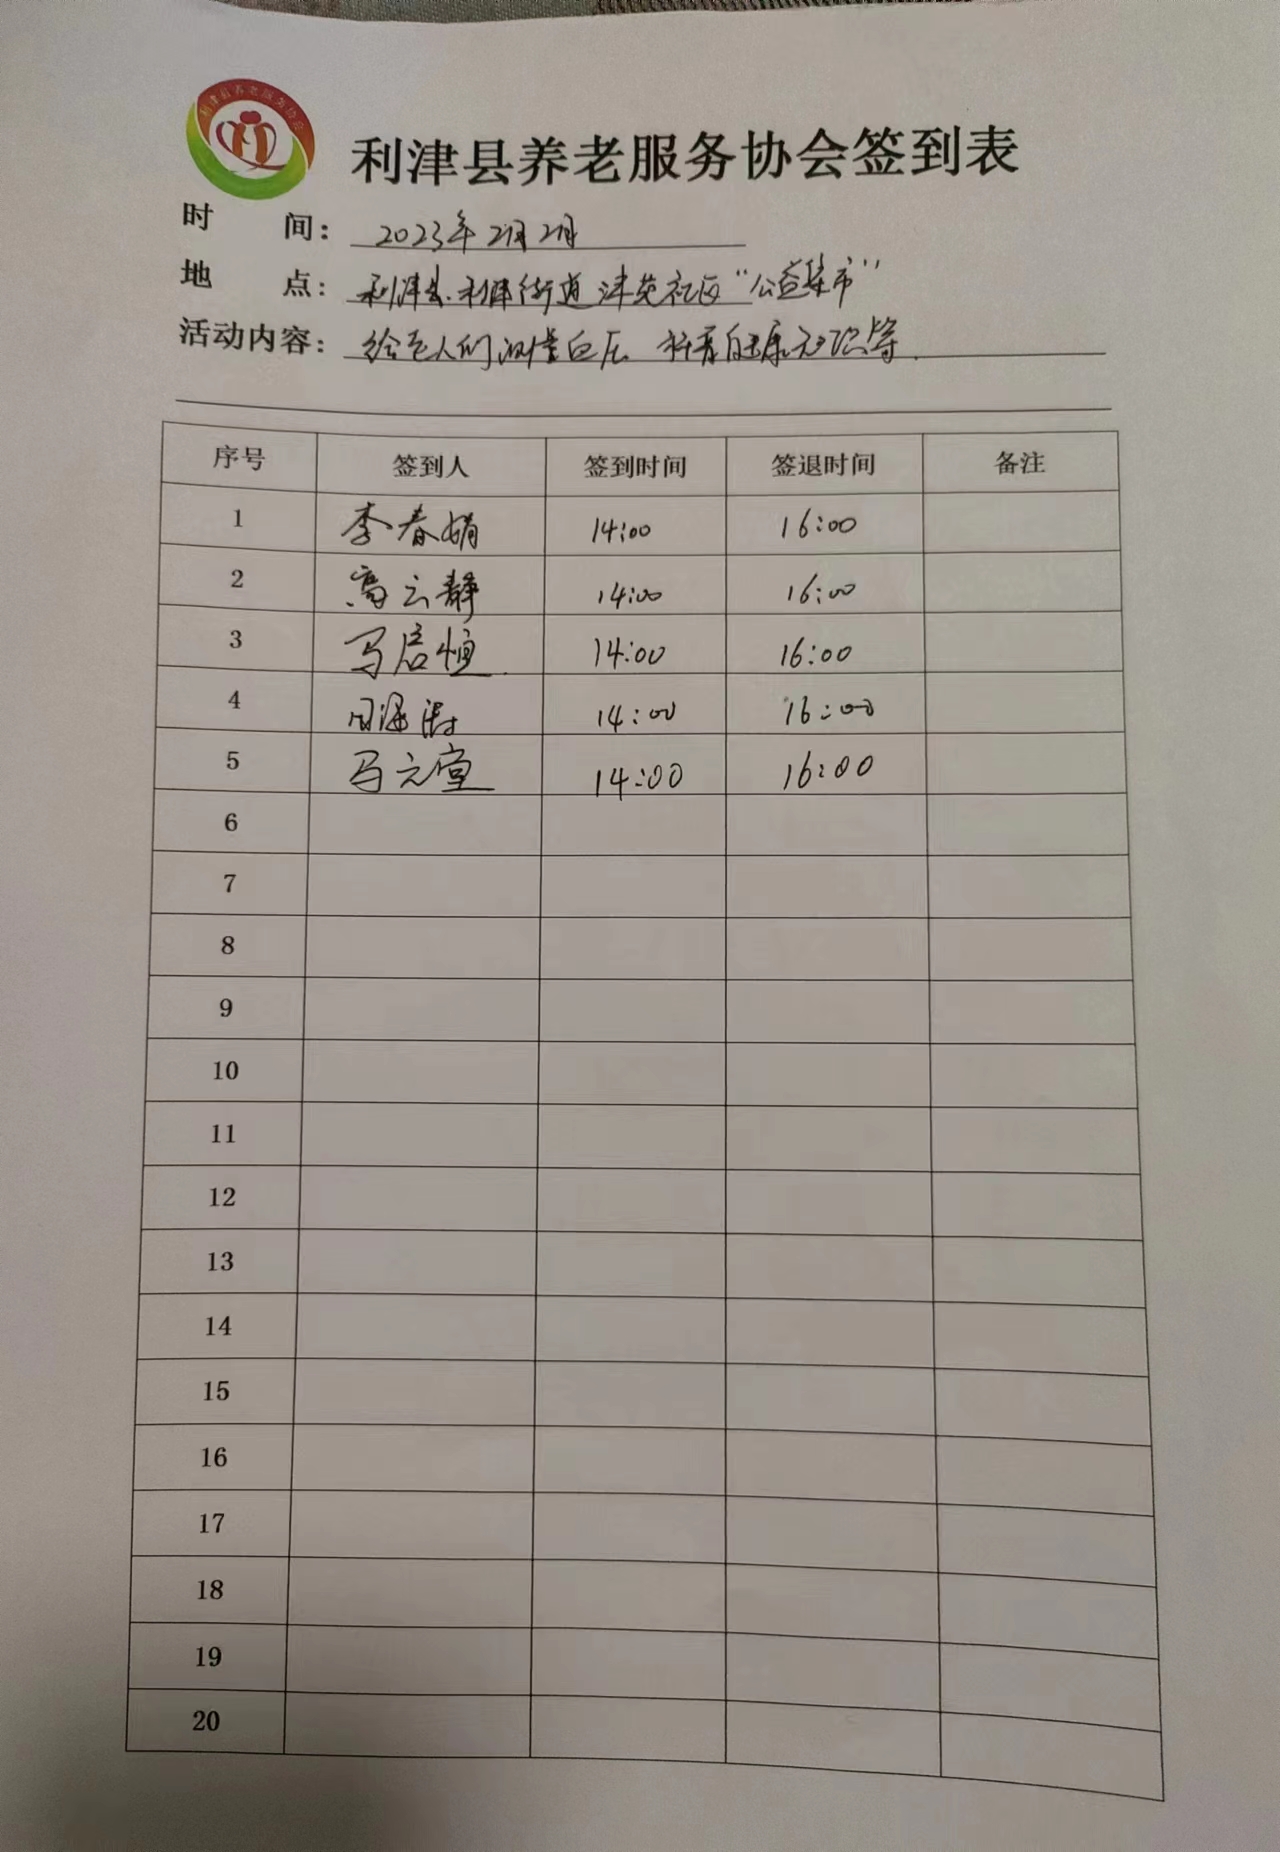 利津县养老服务协会
利津县养老服务协会签到表
时 间: 2023年2月2日
地 点: 利津县利津街道津苑社区“公益集市”
活动内容: 给老人们测量血压 科普健康知识等.
序号 签到人 签到时间 签退时间 备注
1 李春娟 14:00 16:00
2 高云静 14:00 16:00
3 马启恒 14:00 16:00
4 14:00 16:00
5 马元堂 14:00 16:00
6
7
8
9
10
11
12
13
14
15
16
17
18
19
20